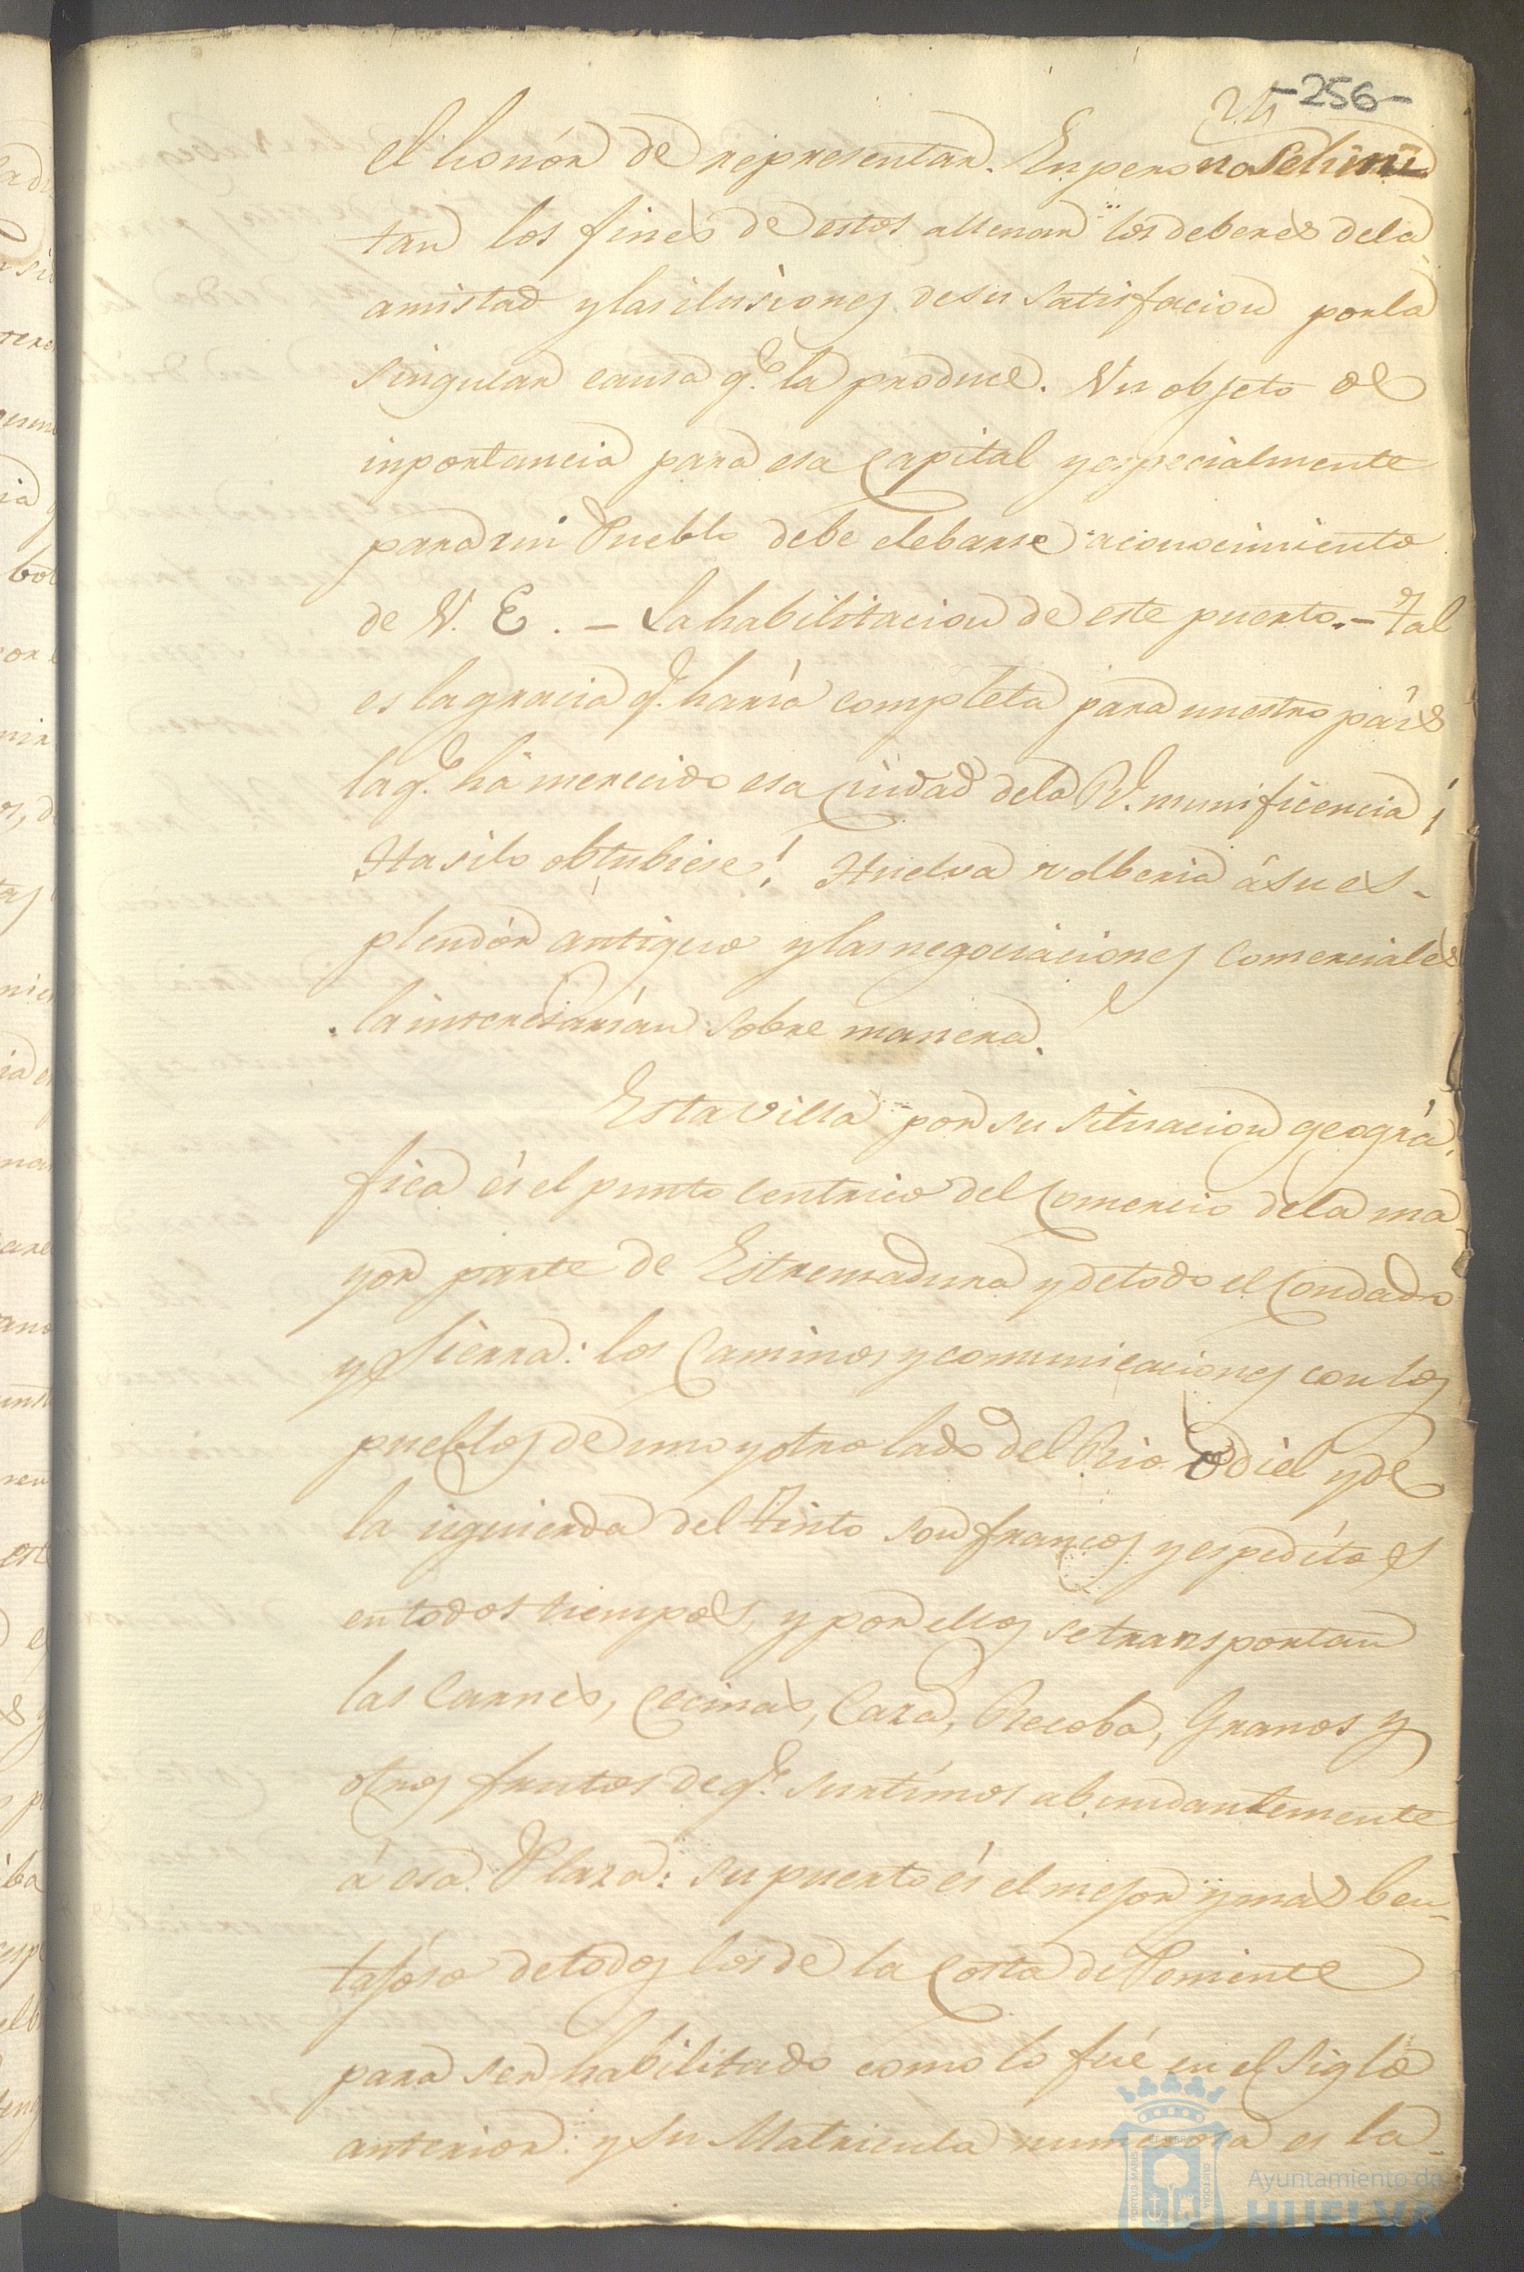 -256-
el honór de representar. Enpero no se limi
tan los fines de estos a llenar los deberes dela
amistad y las ilusiones desu satisfacion porla
singular causa q.e la produce. Un objeto de
inportancia para esa Capital y especialmente
para un Pueblo debe elebarse a conocimiento
de V. E. - La habilitacion de este puerto. - Tal
es la gracia q.e haría completa para nuestro país
la q.e há merecido esa Ciudad dela Rl. munificencia ¡
Ha si lo obtubiese! Huelva volberia á su es-
plendór antiguo y las negociaciones Comerciales
la interesarían sobre manera.
Esta Villa por su situacion geográ
fica és el punto centrico del Comercio dela ma-
yor parte de Estremadura y de todo el Condado
y Sierra: los Caminos y comunicaciones con los
pueblos de uno y otro lado del Rio Odiel y de
la izquierda del Tinto son francos y espeditos
en todos tiempos, y por ellos se transportan
las Carnes, Cecinas, Caza, Recoba, Granos y
otros frutos de q.e surtímos abundantemente
á esa Plaza: su puerto és el mejor y mas ben-
tajoso de todos los de la Costa de Poniente
para ser habilitado como lo fué en el siglo
anterior: y su Matricula numerosa es la
Ayuntamiento de
HUELVA